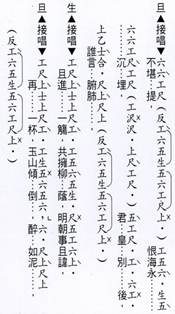 旦▲接唱▼六六工尺(反工六五生五六工尺上)工五六·生五
不堪…提… 恨海永…
六六工尺·(工沢沢·上尺工尺·)五尺工·六工·
……沉埋, 君…皇·別…後,
上乙士合·尺上尺上(反工六五生五六工尺上·)
誰言…腑肺……
生▲接唱▼工尺上士上尺工尺·尺工上尺·尺五工六上·
且進…一觴,共擁柳…蔭,明朝事且諱,
旦▲接唱▼工尺上尺工·尺工六五生五五六·六·尺上尺上
再……一杯,玉山傾…倒…,醉…如泥…,
(反工六五生五六工尺上·)